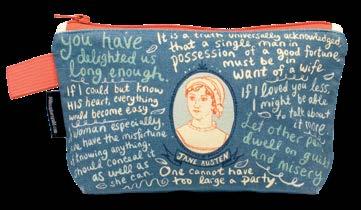 you have
delighted us
long enough.
It is a truth universally acknowledged
that a single man in
possession of a good fortune
must be in
want of a wife
If I could but know
HIS heart, everything
would become easy
If I loved you less,
I might be able
to talk about
it more
A woman especially,
if she have the misfortune
of knowing anything,
should conceal it
as well as
she can.
Let other pens
dwell on guilt
and misery
JANE AUSTEN
One cannot have
too large a party.